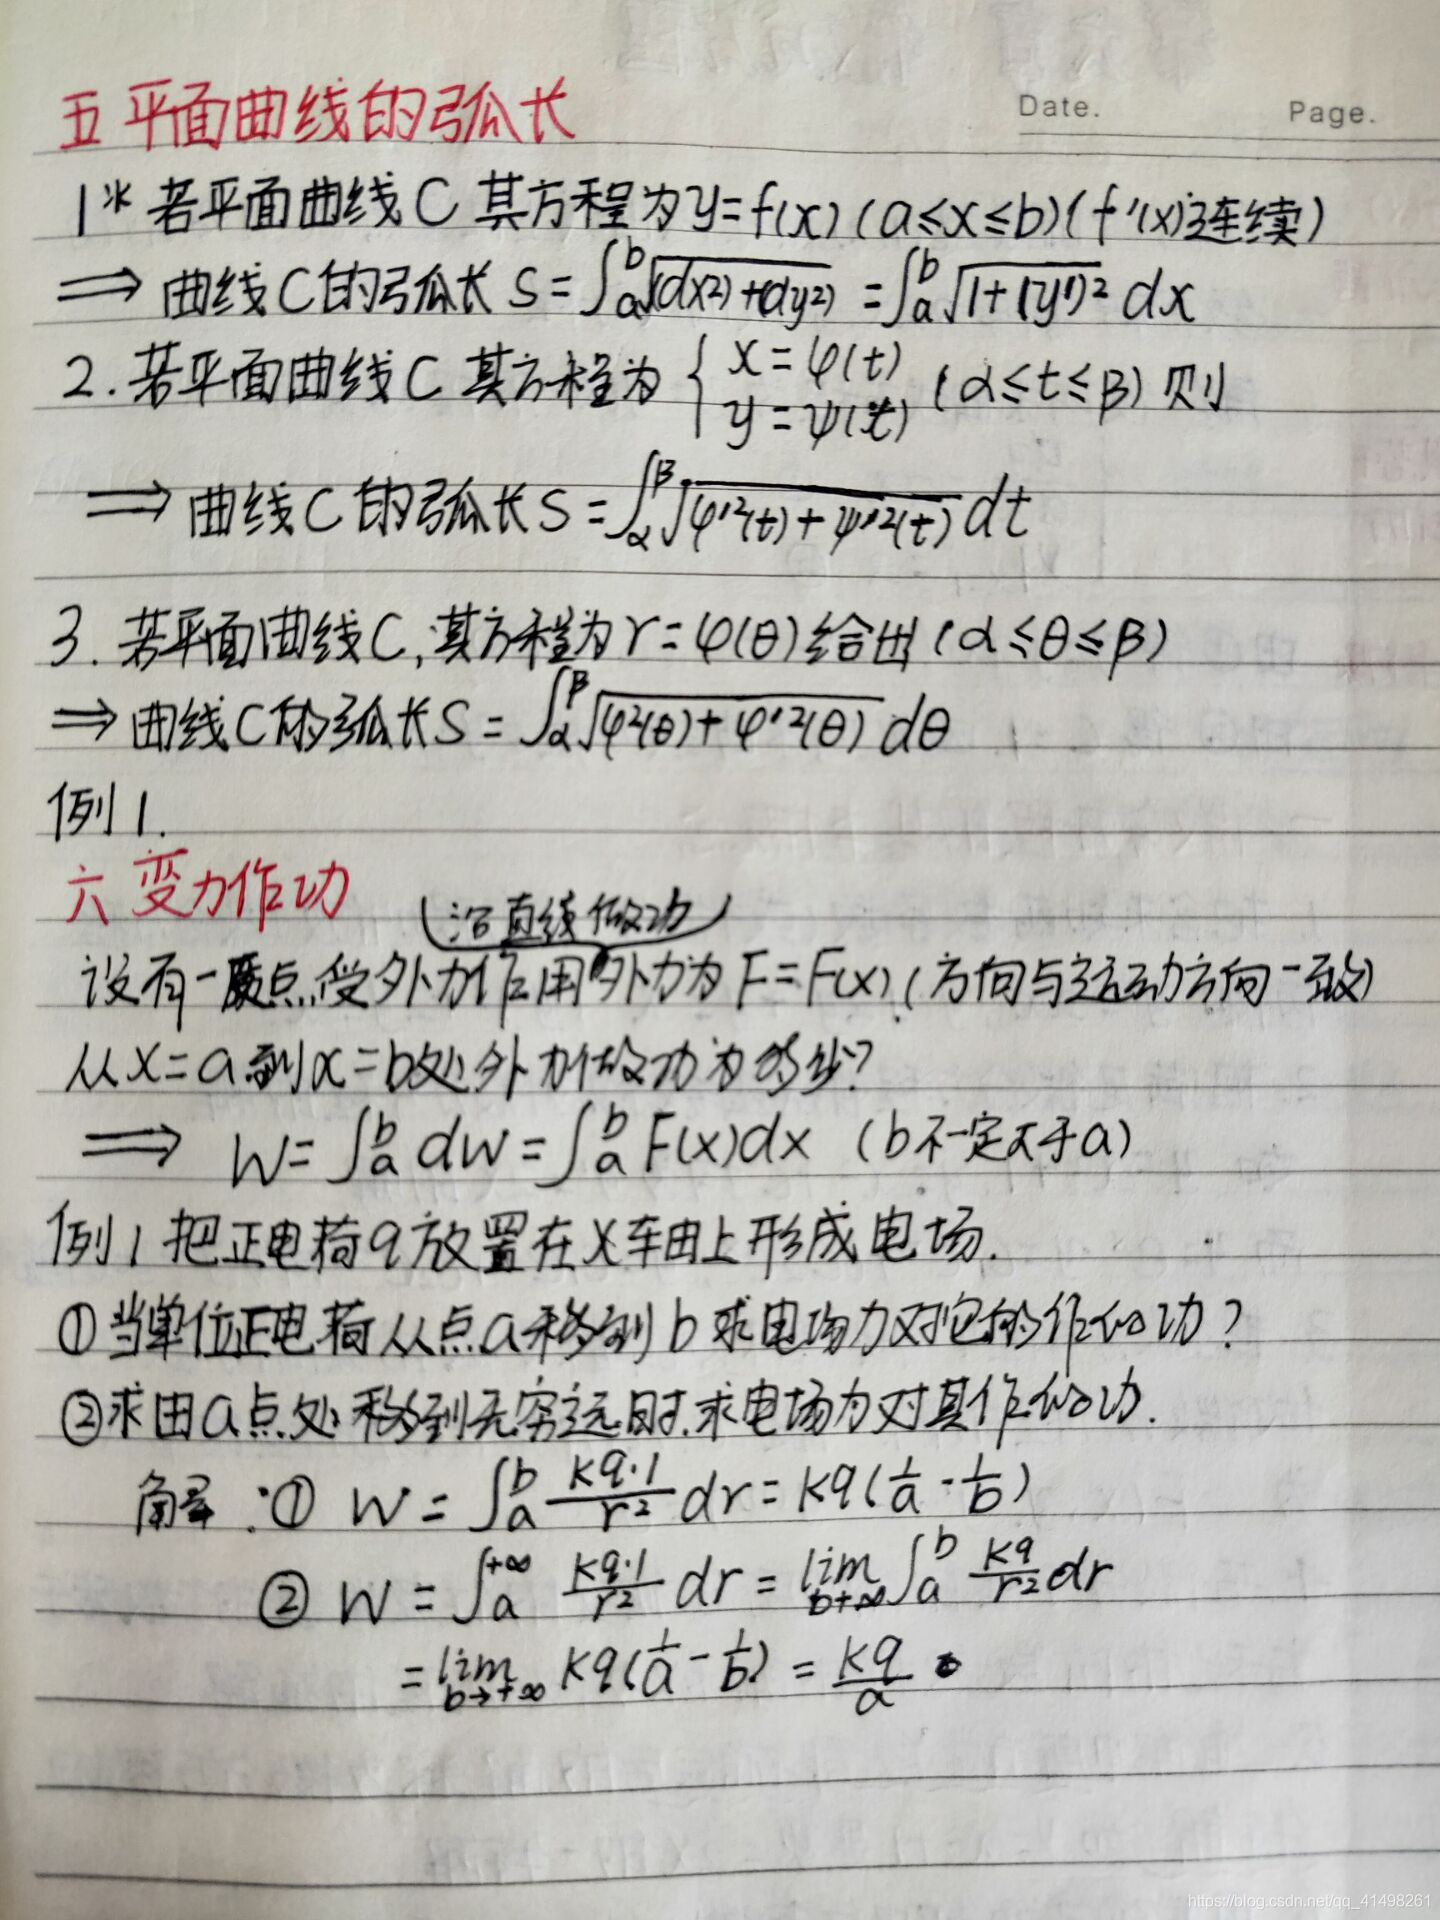 五 平面曲线的弧长
Date. Page.
1* 若平面曲线C 其方程为y=f(x) (a≤x≤b)(f'(x)连续)
⇒ 曲线C的弧长 S=∫_a^b √((dx²)+(dy²)) =∫_a^b √(1+(y')²) dx
2. 若平面曲线C 其方程为 { x=φ(t) y=ψ(t) (α≤t≤β) 则
⇒ 曲线C的弧长S=∫_α^β √(φ'²(t)+ψ'²(t)) dt
3. 若平面曲线C,其方程为r=φ(θ)给出(α≤θ≤β)
⇒ 曲线C的弧长S=∫_α^β √(φ²(θ)+φ'²(θ)) dθ
例1.
六 变力作功
(沿直线做功)
设有一质点受外力作用外力为 F=F(x) (方向与运动方向一致)
从x=a到x=b处外力做功为多少?
⇒ W=∫_a^b dw=∫_a^b F(x)dx (b不一定大于a)
例1 把正电荷q放置在x轴上形成电场.
①当单位正电荷从点a移到b求电场力对它的作的功?
②求由a点处移到无穷远时.求电场力对其作的功.
解:① W=∫_a^b kq·1/r² dr=kq(1/a-1/b)
② W=∫_a^{+∞} kq·1/r² dr=lim_{b→+∞} ∫_a^b kq/r² dr
=lim_{b→+∞} kq(1/a-1/b)=kq/a
https://blog.csdn.net/qq_41498261